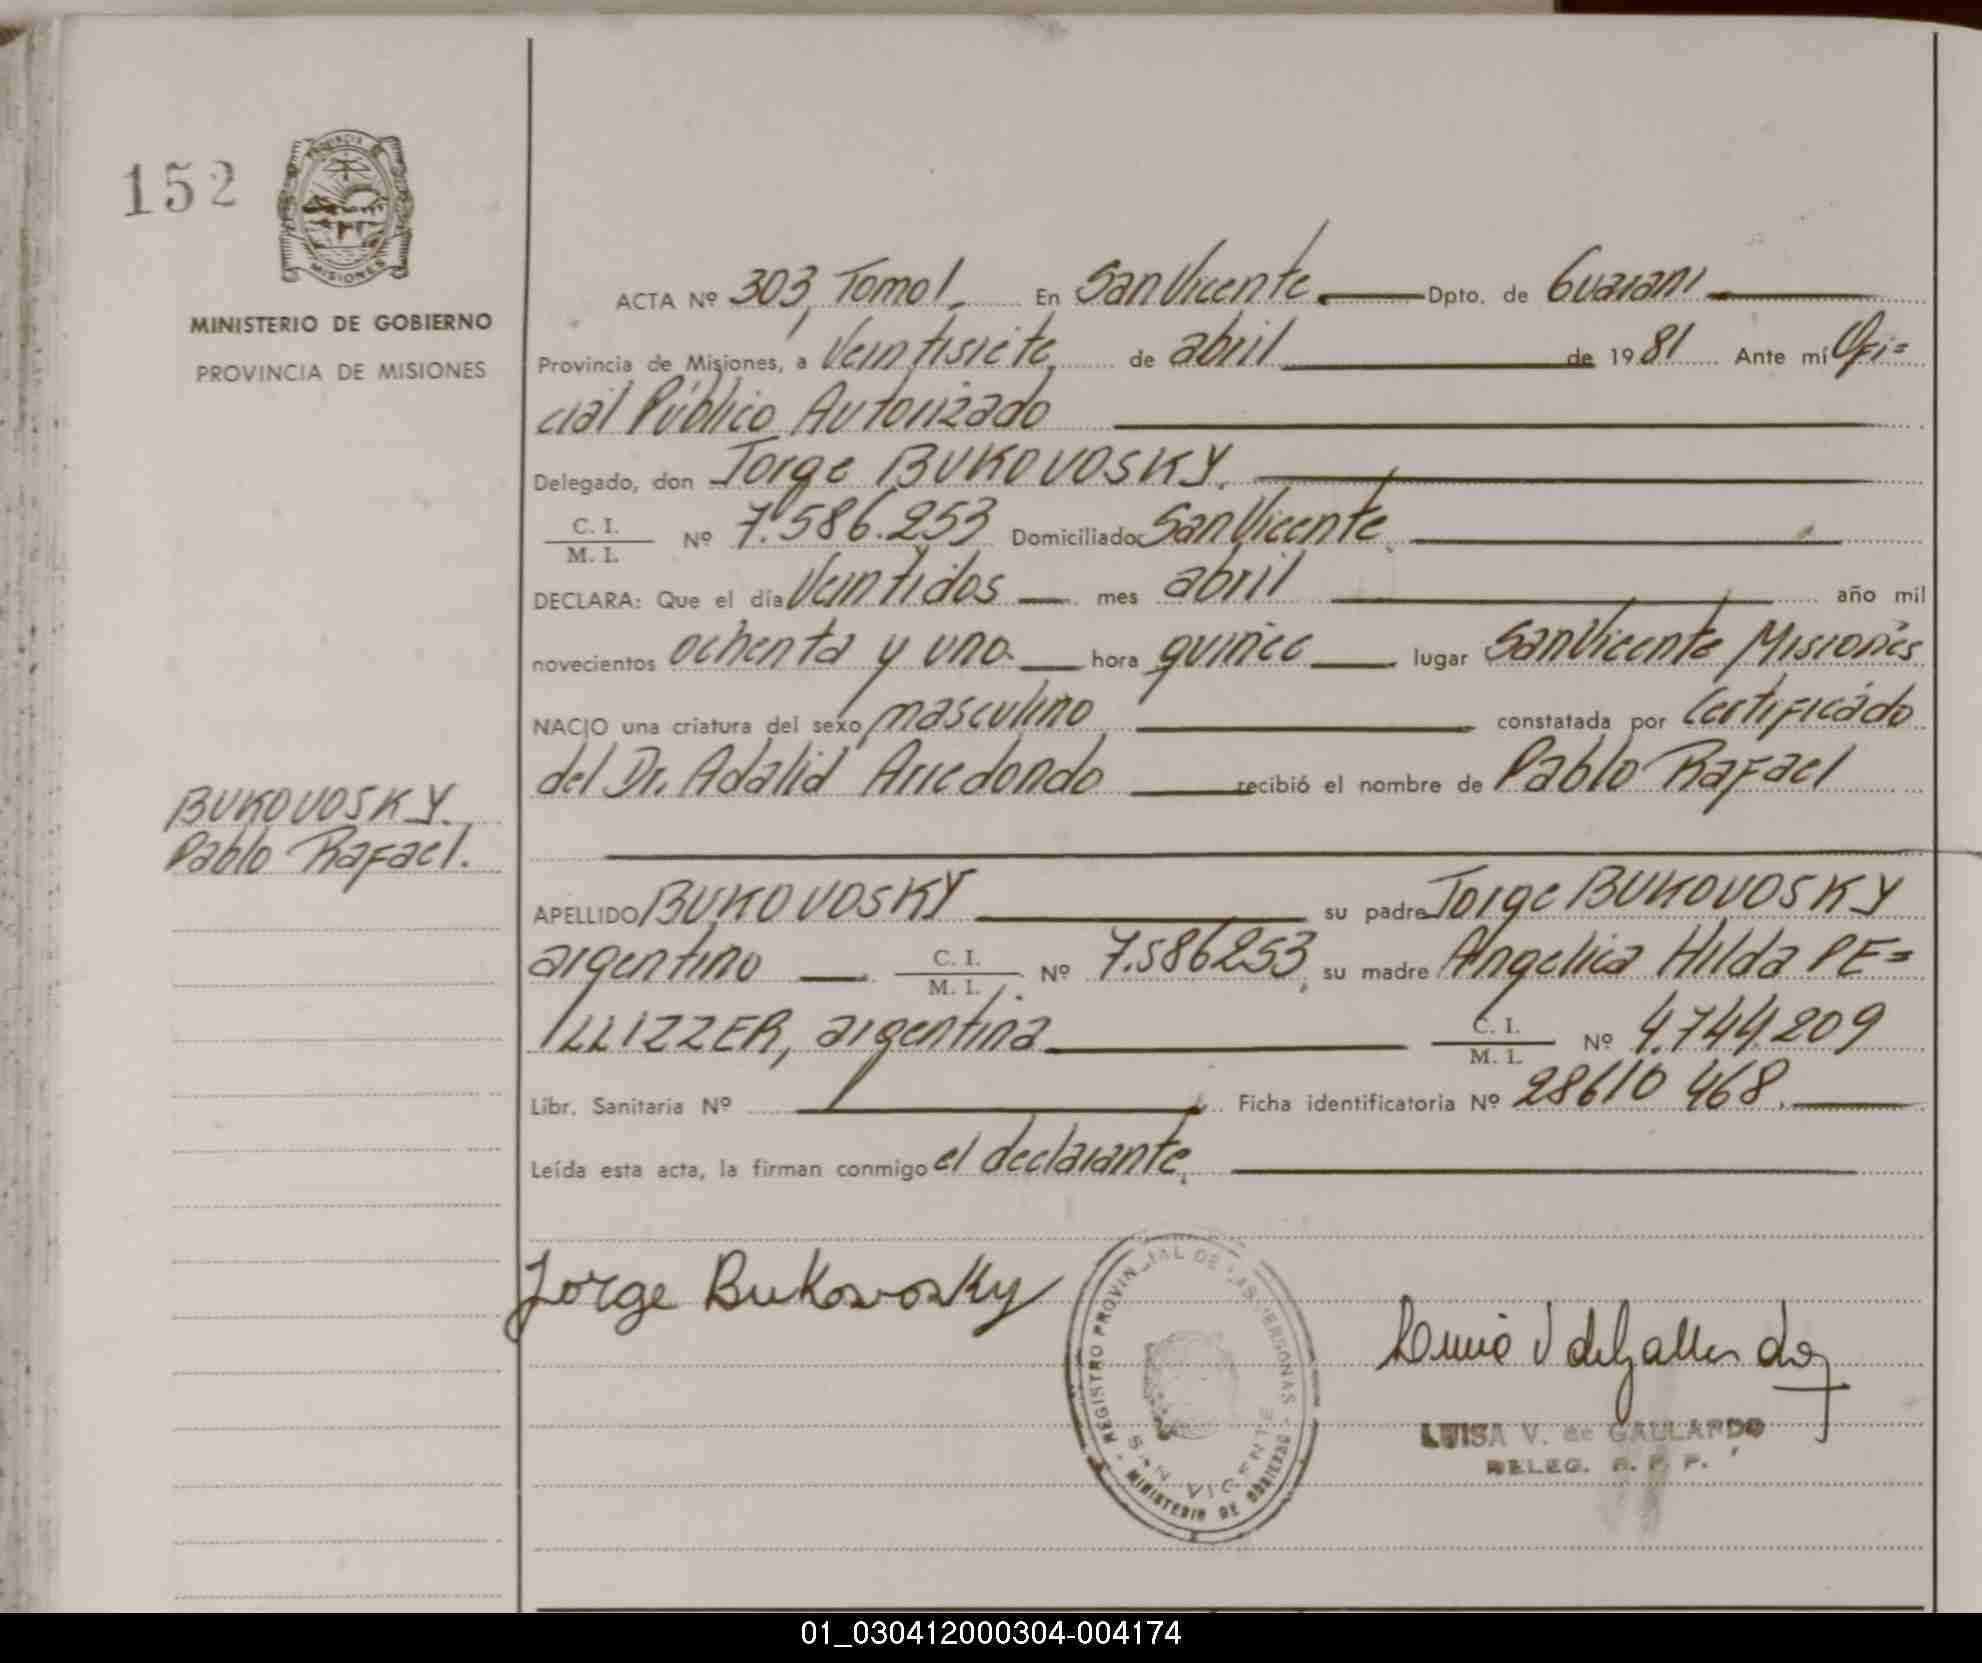 152
PROVINCIA DE MISIONES
MINISTERIO DE GOBIERNO
PROVINCIA DE MISIONES
ACTA Nº 303, Tomo I. En San Vicente Dpto. de Guarani
Provincia de Misiones, a Veintisiete de abril de 1981 Ante mí Ofi=
cial Público Autorizado
Delegado, don Jorge BUKOVOSKY.
C. I. / M. I. Nº 7.586.253 Domiciliado San Vicente
DECLARA: Que el día Veintidos mes abril año mil
novecientos ochenta y uno hora quince lugar San Vicente Misiones
NACIO una criatura del sexo masculino constatada por Certificado
del Dr. Adalid Arredondo recibió el nombre de Pablo Rafael
BUKOVOSKY.
Pablo Rafael.
APELLIDO BUKOVOSKY su padre Jorge BUKOVOSKY
argentino C. I. / M. I. Nº 7.586253, su madre Angelica Hilda PE=
LLIZZER, argentina C. I. / M. I. Nº 4.744.209
Libr. Sanitaria Nº Ficha identificatoria Nº 28610 468.
Leída esta acta, la firman conmigo el declarante,
Jorge Bukovosky
REGISTRO PROVINCIAL DE LAS PERSONAS
SAN VICENTE
MINISTERIO DE GOBIERNO
LUISA V. de GALLARDO
DELEG. R. P. P.
01_030412000304-004174